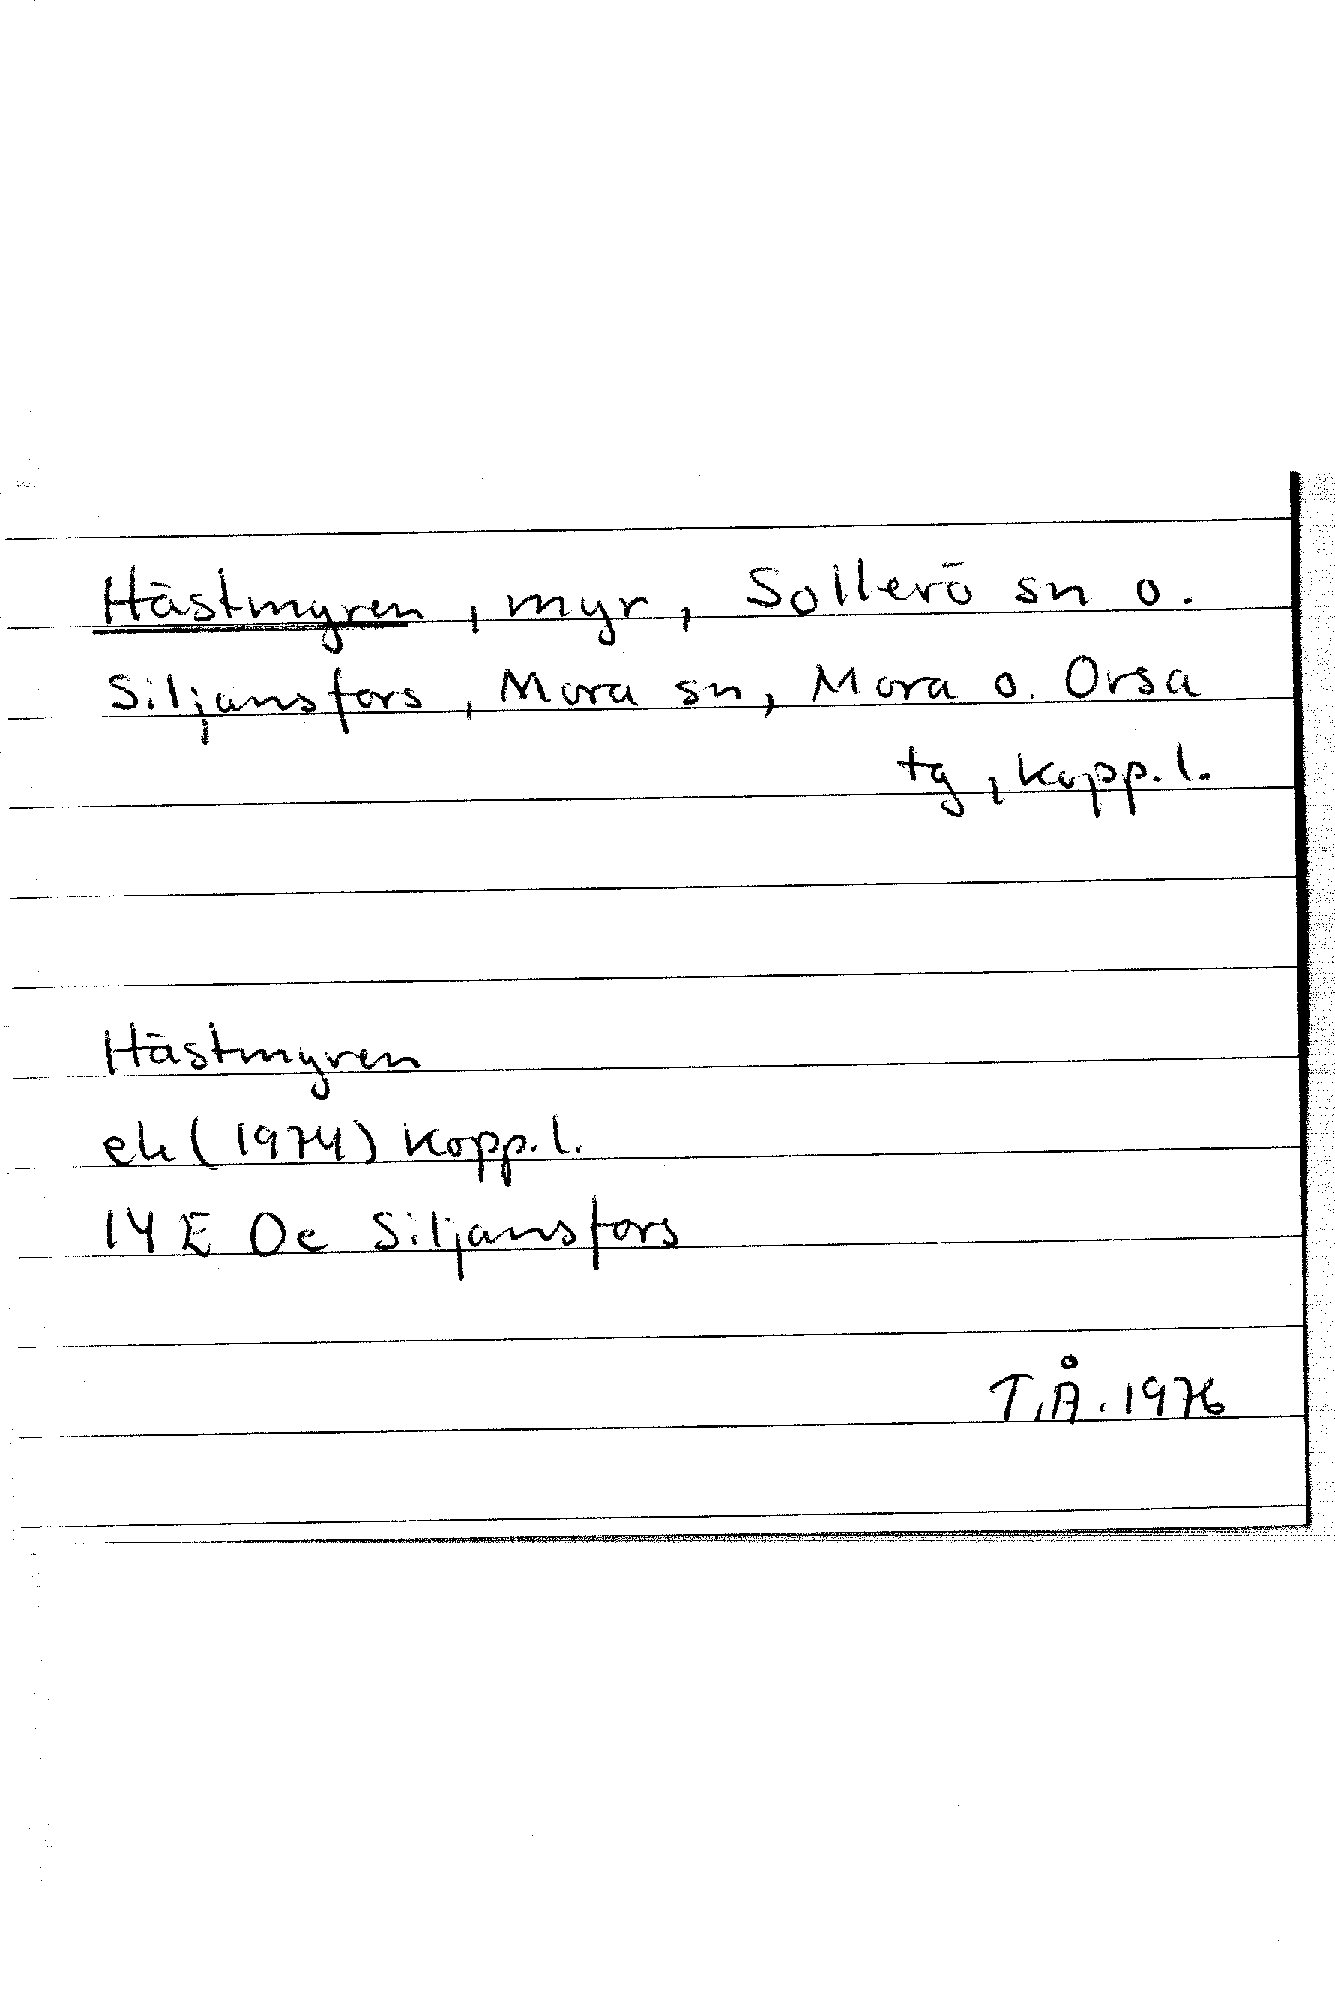 Hästmyren, myr, Sollerö sn o.
Siljansfors, Mora sn, Mora o. Orsa
tg, Kopp. l.
Hästmyren
ek (1974) Kopp. l.
14 E 0e Siljansfors
T.Å. 1976